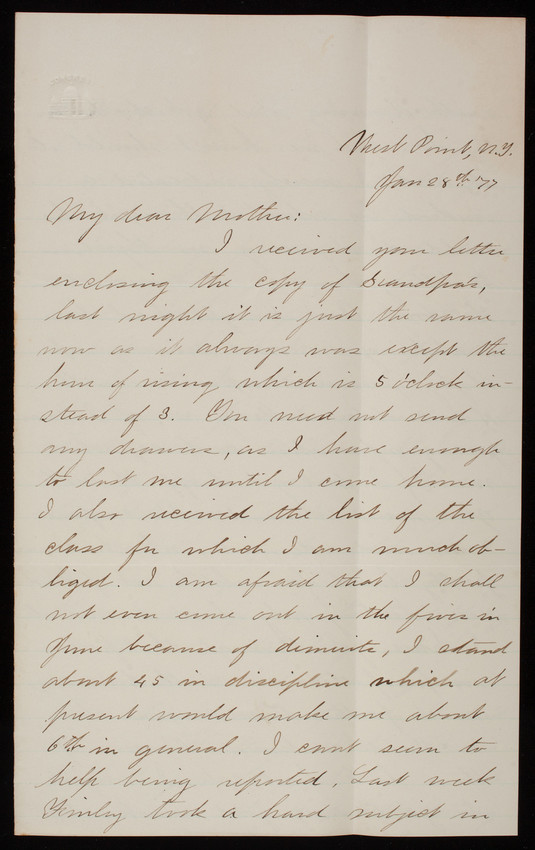 West Point, N.Y.
Jan 28th '77
My dear Mother:
I received your letter
enclosing the copy of Grandpa's,
last night it is just the same
now as it always was except the
hour of rising, which is 5 o'clock in-
stead of 3. You need not send
my drawers, as I have enough
to last me until I come home.
I also received the list of the
class for which I am much ob-
liged. I am afraid that I shall
not even come out in the fives in
June because of demerits, I stand
about 45 in discipline which at
present would make me about
6th in general. I cant seem to
help being reported. Last week
Finley took a hard subject in